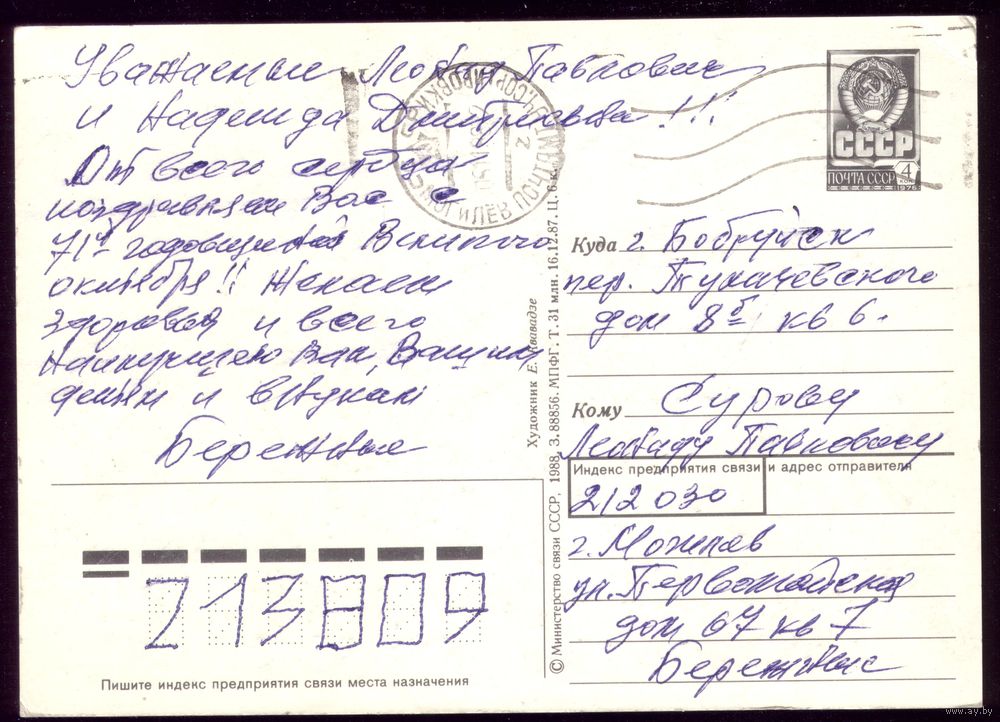 Уважаемые Леонид Павлович
и Надежда Дмитриевна!!!
От всего сердца
поздравляем Вас с
71й годовщиной Великого
октября!! Желаем
здоровья и всего
наилучшего Вам, Вашим
детям и внукам
Бережные
МОГИЛЕВ ПОЧТАМТ
СССР
ПОЧТА СССР 4
1976
Куда г. Бобруйск
пер. Тухачевского
дом 8б кв 6.
Кому Сурову
Леониду Павловичу
Индекс предприятия связи и адрес отправителя
212030
г. Могилев
ул. Первомайская
дом 67 кв 7
Бережные
213809
Пишите индекс предприятия связи места назначения
Художник Е. Квавадзе
© Министерство связи СССР, 1988. З. 88856. МПФГ. Т. 31 млн. 16.12.87. Ц. 6 к.
www.ay.by